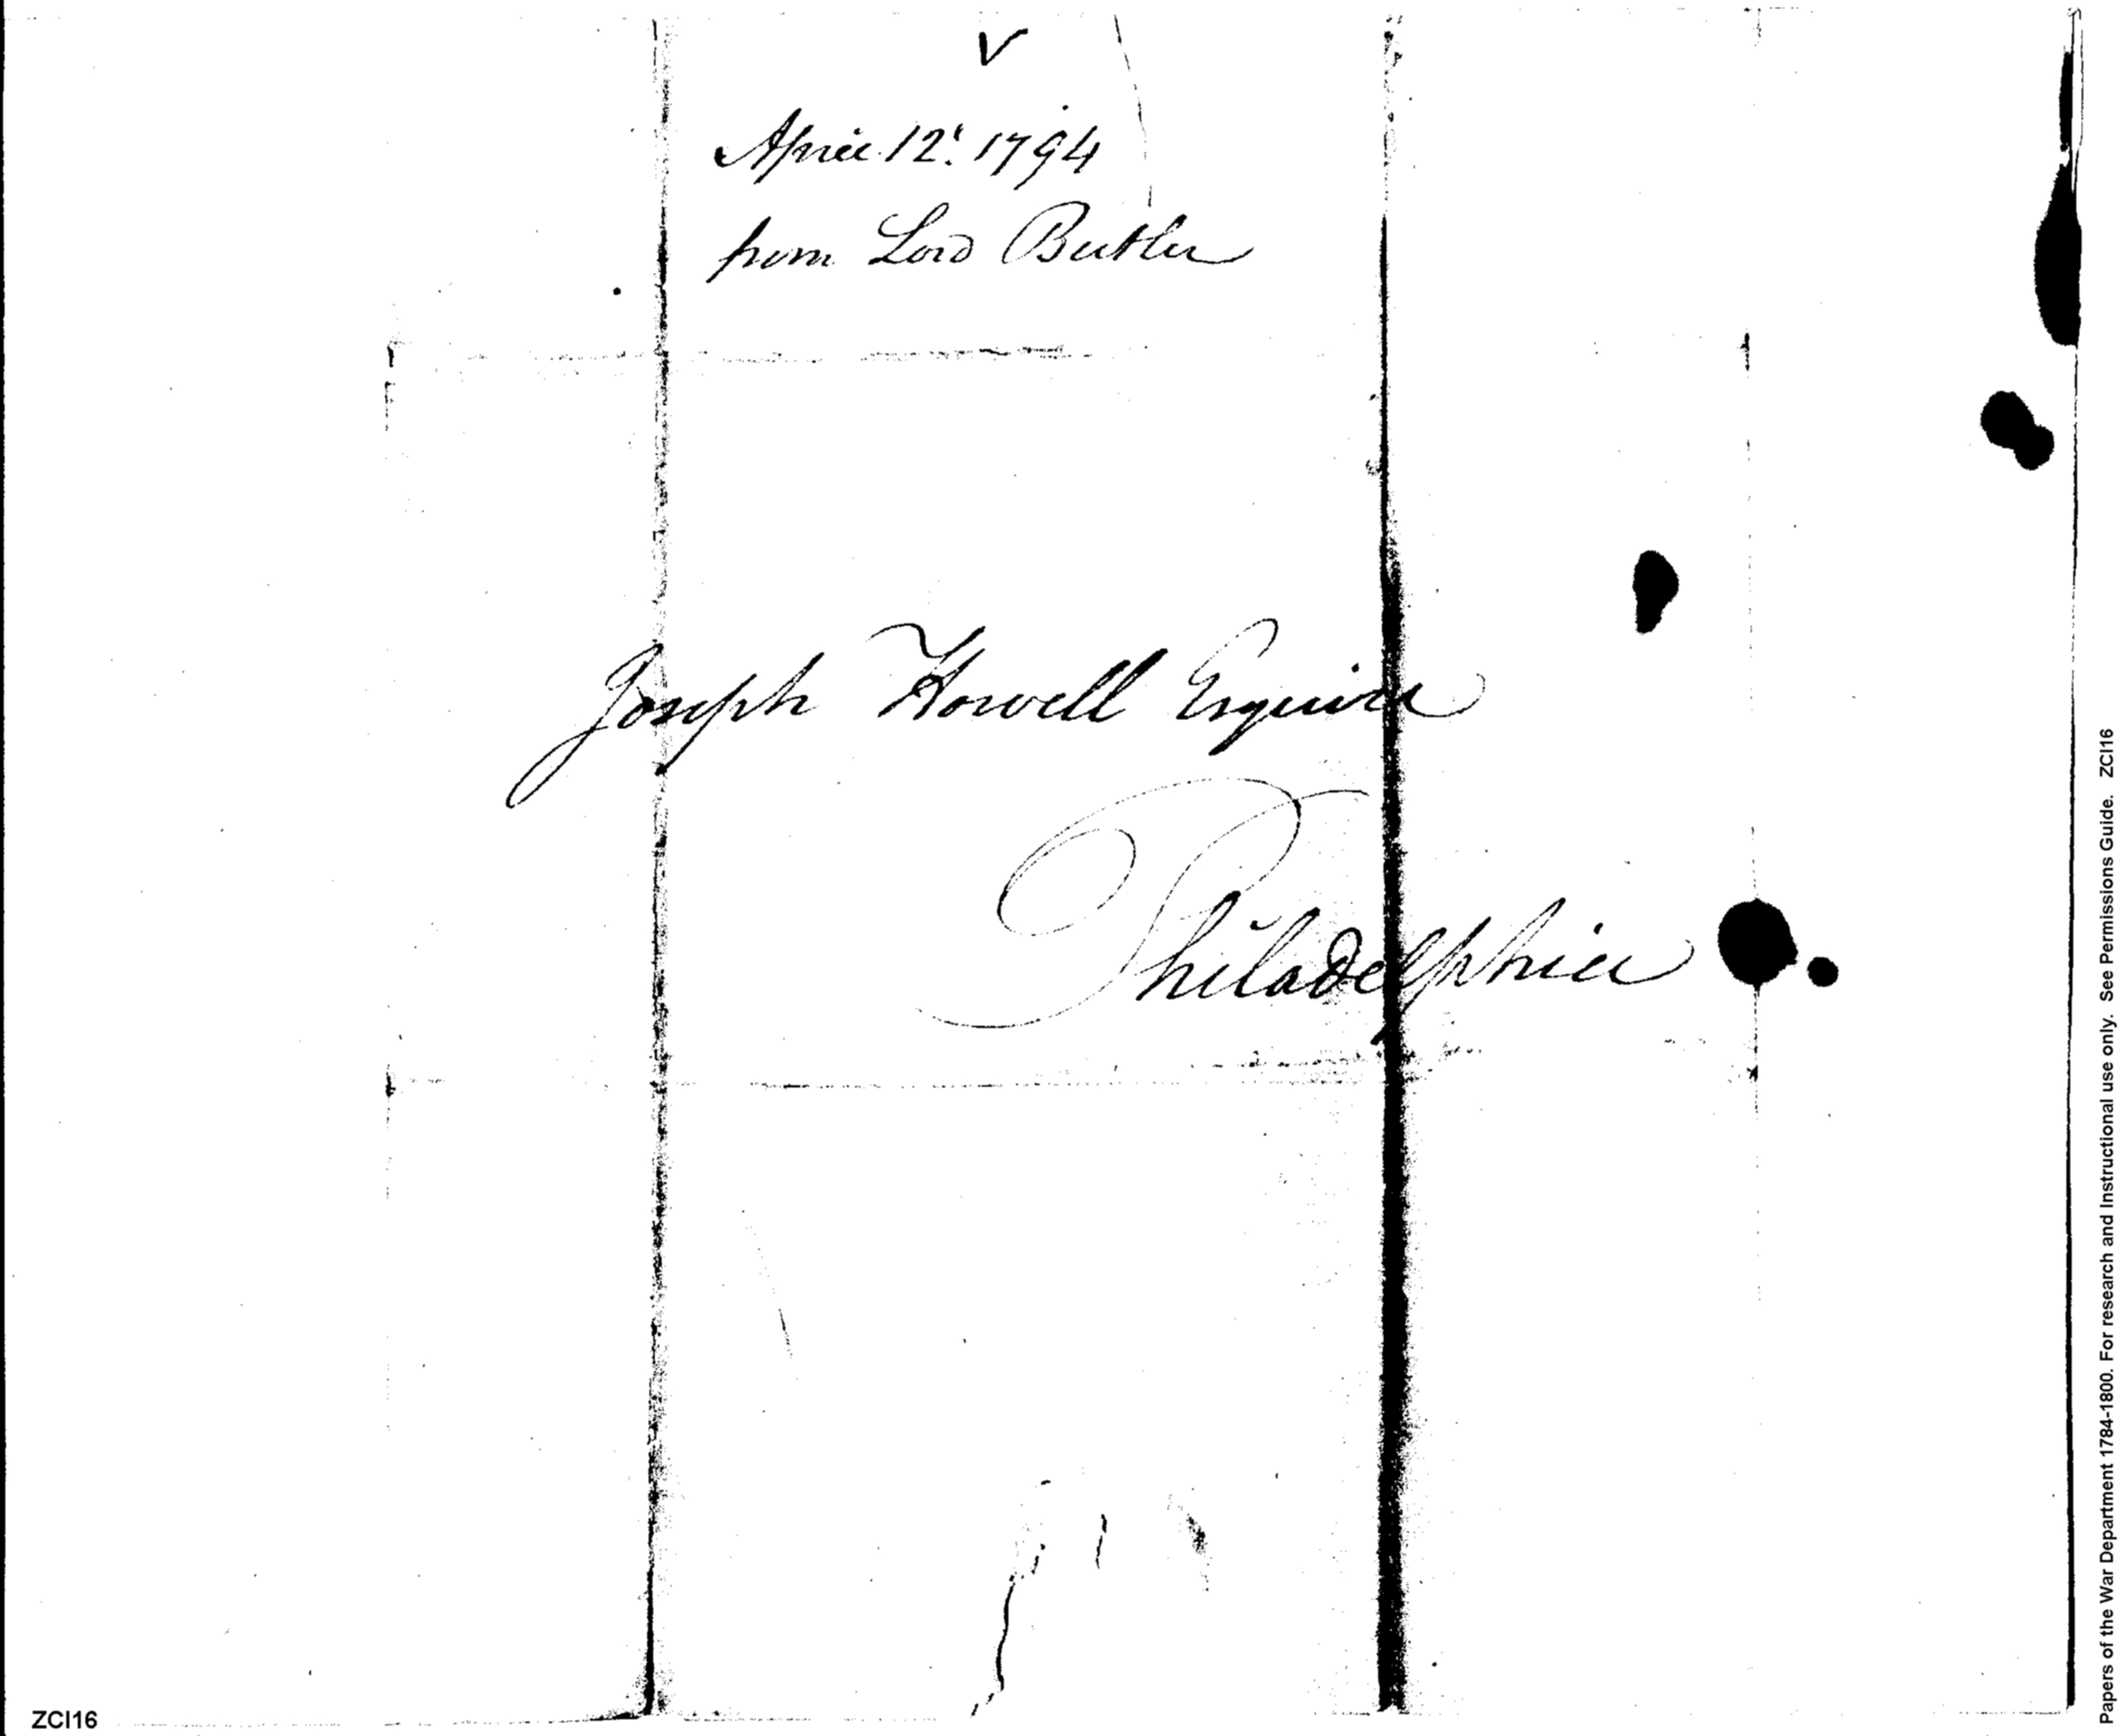 V
April 12: 1794
from Lord Butler
Joseph Howell Esquire
Philadelphia
ZCI16
Papers of the War Department 1784-1800. For research and Instructional use only. See Permissions Guide. ZCI16